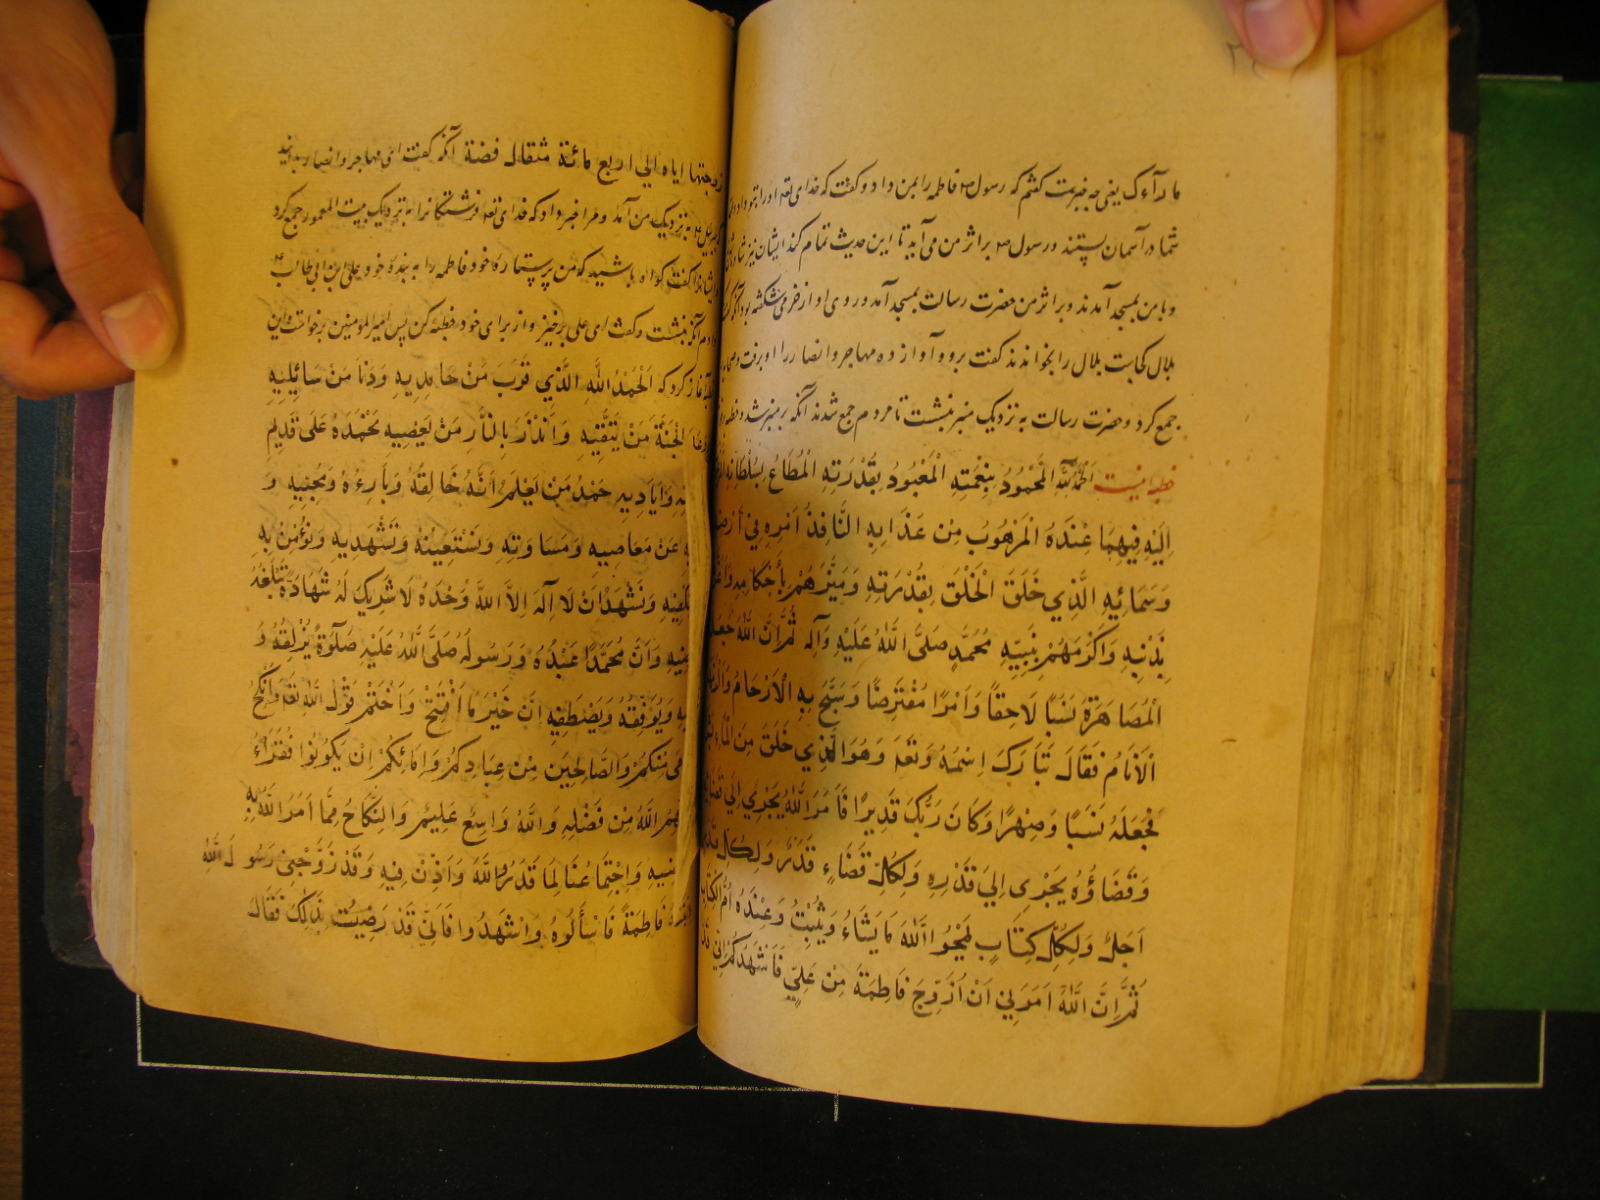 ما درآءک یعنی چه خبرست گفتم که رسول ص فاطمه را بمن داد و گفت که خدای تعه او را بتو داد
شما در آسمان بستند و رسول ص بر اثر من می آید تا این حدیث تمام کند ایشان نیز شاد
و با من بمسجد آمدند و بر اثر من حضرت رسالت بمسجد آمد و روی او از خرمی شکفته بود آنکه گفت
بلال کجاست بلال را بخواندند گفت برو و آواز ده مهاجر و انصار را او برفت و
جمع کرد و حضرت رسالت به نزدیک منبر بنشست تا مردم جمع شدند آنکه بر منبر شد و خطبه
خطبه اینست اَلْحَمْدُ لِلّٰهِ الْمَحْمُودُ بِنِعْمَتِهِ الْمَعْبُودُ بِقُدْرَتِهِ الْمُطَاعُ بِسُلْطَانِهِ
اِلَيْهِ فِيهِمَا عِنْدَهُ الْمَرْهُوبُ مِنْ عَذَابِهِ النَّافِذُ اَمْرُهُ فِي اَرْضِهِ
وَسَمَائِهِ الَّذِي خَلَقَ الْخَلْقَ بِقُدْرَتِهِ وَمَيَّزَهُمْ بِاَحْكَامِهِ
بِدِينِهِ وَاَكْرَمَهُمْ بِنَبِيِّهِ مُحَمَّدٍ صَلَّى اللّٰهُ عَلَيْهِ وَآلِهِ ثُمَّ اِنَّ اللّٰهَ جَعَلَ
الْمُصَاهَرَةَ نَسَبًا لَاحِقًا وَاَمْرًا مُفْتَرِضًا وَسَبَّحَ بِهِ الْاَرْحَامُ
الْاَنَامُ فَقَالَ تَبَارَكَ اسْمُهُ وَتَعَهَ وَهُوَ الَّذِي خَلَقَ مِنَ الْمَاءِ
فَجَعَلَهُ نَسَبًا وَصِهْرًا وَكَانَ رَبُّكَ قَدِيرًا فَاَمْرُ اللّٰهِ يَجْرِي اِلَى قَضَائِهِ
وَقَضَاؤُهُ يَجْرِي اِلَى قَدَرِهِ وَلِكُلِّ قَضَاءٍ قَدَرٌ وَلِكُلِّ قَدَرٍ
اَجَلٌ وَلِكُلِّ كِتَابٍ يَمْحُوا اللّٰهُ مَا يَشَاءُ وَيُثْبِتُ وَعِنْدَهُ اُمُّ الْكِتَابِ
ثُمَّ اِنَّ اللّٰهَ اَمَرَنِي اَنْ اُزَوِّجَ فَاطِمَةَ مِنْ عَلِيٍّ فَاَشْهِدُكُمْ اَنِّي قَدْ
زوجتها ایاه الی اربع مائة مثقال فضة آنکه گفت ای مهاجر و انصار بدانید
جبرئیل ع به نزدیک من آمد و مرا خبر داد که خدای تعه فرشتگان را به نزدیک بیت المعمور جمع کرد
و ایشانرا گفت گواه باشید که من پرستار خود فاطمه را به بنده خود علی بن ابی طالب
آنکه بنشست و گفت ای علی برخیز و از برای خود خطبه کن پس امیر المومنین برخواست و این
خطبه آغاز کرد که اَلْحَمْدُ لِلّٰهِ الَّذِي قَرُبَ مِنْ حَامِدِيهِ وَدَنَا مِنْ سَائِلِيهِ
الْجَنَّةَ مَنْ يَتَّقِيهِ وَاَنْذَرَ بِالنَّارِ مَنْ يَعْصِيهِ نَحْمَدُهُ عَلَى قَدِيمِ
وَاَيَادِيهِ حَمْدَ مَنْ يَعْلَمُ اَنَّهُ خَالِقُهُ وَبَارِءُهُ وَ
عَنْ مَعَاصِيهِ وَمَسَاوِيهِ وَنَسْتَعِينُهُ وَنَسْتَهْدِيهِ وَنُؤْمِنُ بِهِ
وَنَشْهَدُ اَنْ لَا اِلٰهَ اِلَّا اللّٰهُ وَحْدَهُ لَا شَرِيكَ لَهُ شَهَادَةً تَبْلُغُهُ
وَاَنَّ مُحَمَّدًا عَبْدُهُ وَرَسُولُهُ صَلَّى اللّٰهُ عَلَيْهِ صَلَوةً تُزْلِفُهُ وَ
وَيُوَفِّقُهُ وَيَصْطَفِيهِ اِنَّ خَيْرَ مَا افْتُتِحَ وَاخْتُتِمَ قَوْلُ اللّٰهِ تَعَهَ وَاَنْكِحُوا
مِنْكُمْ وَالصَّالِحِينَ مِنْ عِبَادِكُمْ وَاِمَائِكُمْ اِنْ يَكُونُوا فُقَرَاءَ
يُغْنِهِمُ اللّٰهُ مِنْ فَضْلِهِ وَاللّٰهُ وَاسِعٌ عَلِيمٌ وَالنِّكَاحُ مِمَّا اَمَرَ اللّٰهُ بِهِ
وَاجْتِمَاعُنَا لِمَا قَدَّرَ اللّٰهُ وَاَذِنَ فِيهِ وَقَدْ زَوَّجَنِي رَسُولُ اللّٰهِ
ابْنَتَهُ فَاطِمَةَ فَاسْأَلُوهُ وَاشْهَدُوا فَاِنِّي قَدْ رَضِيتُ بِذٰلِكَ فَقَالَ